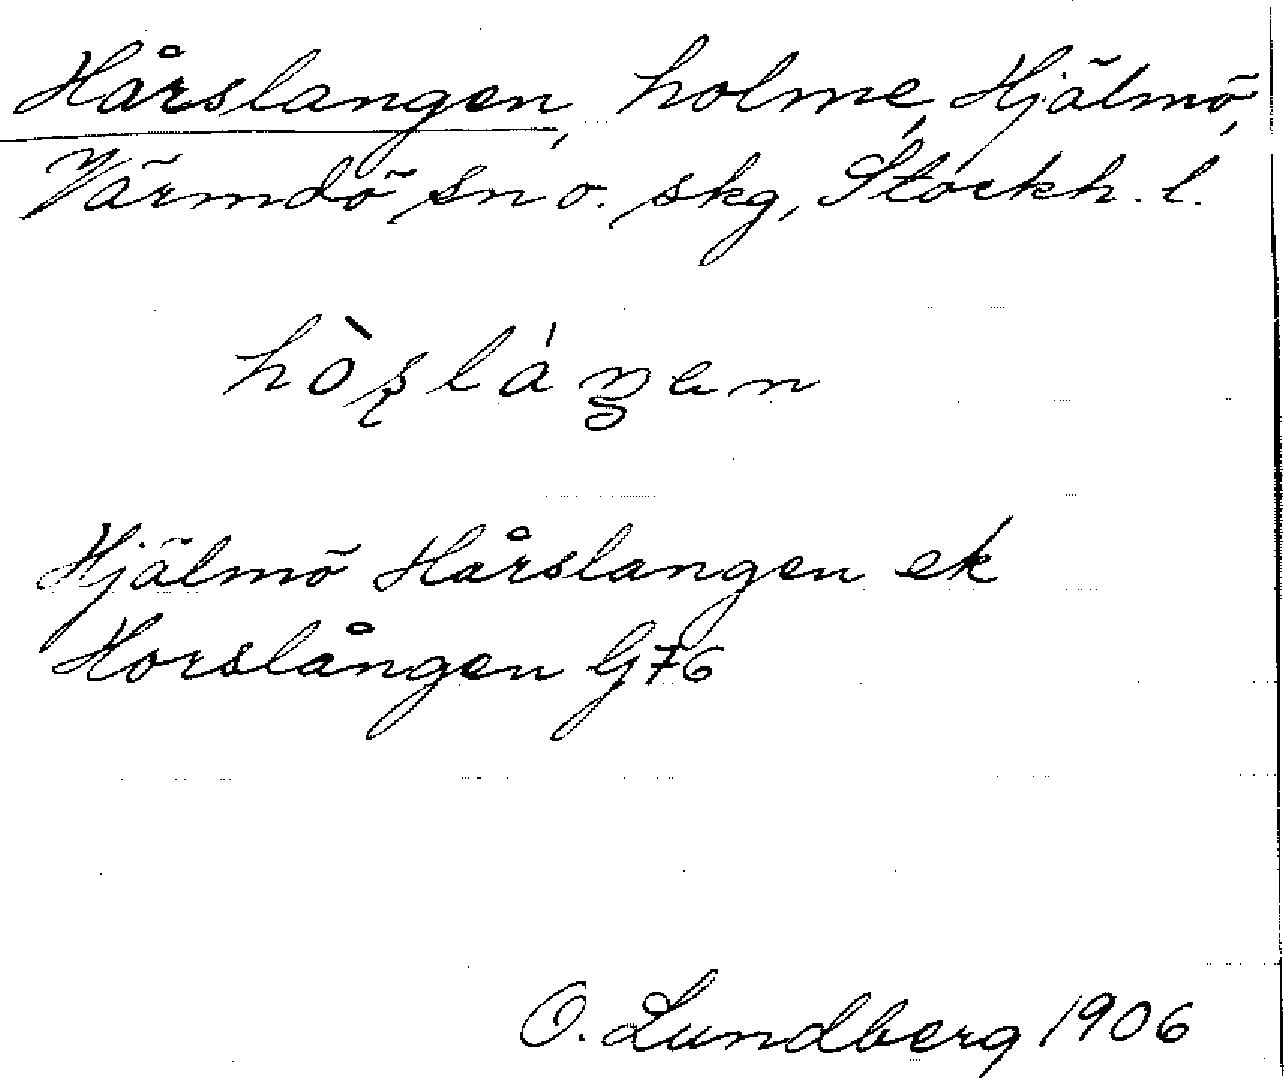 Hårslangen, holme, Hjälmö,
Värmdö sn o. skg, Stockh. l.
hò̀ʂláŋen
Hjälmö Hårslangen ek
Horslången G76
O. Lundberg 1906